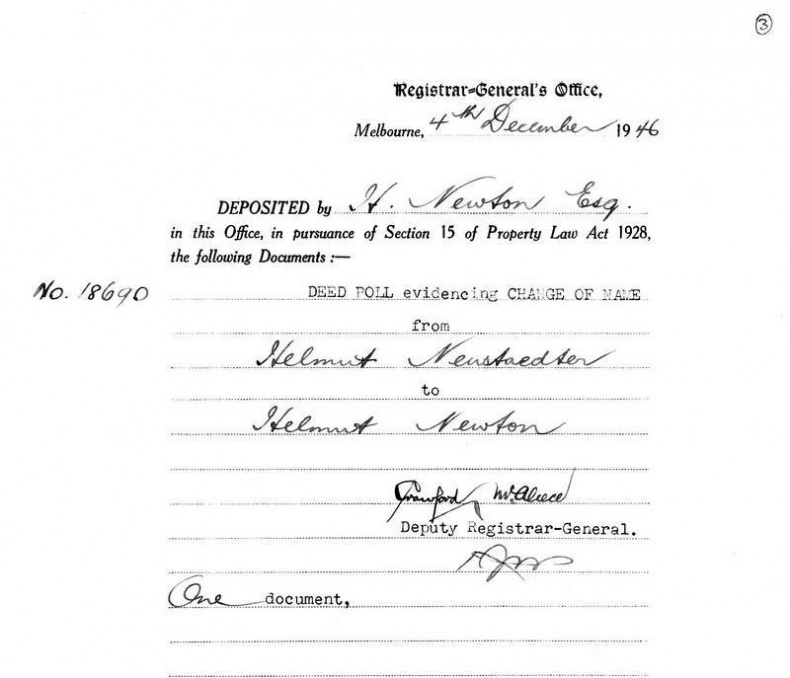 3
Registrar-General's Office,
Melbourne, 4th December 1946
DEPOSITED by H. Newton Esq.
in this Office, in pursuance of Section 15 of Property Law Act 1928,
the following Documents :—
No. 18690 DEED POLL evidencing CHANGE OF NAME
from
Helmut Neustaedter
to
Helmut Newton
Crawford
Deputy Registrar-General.
One document,